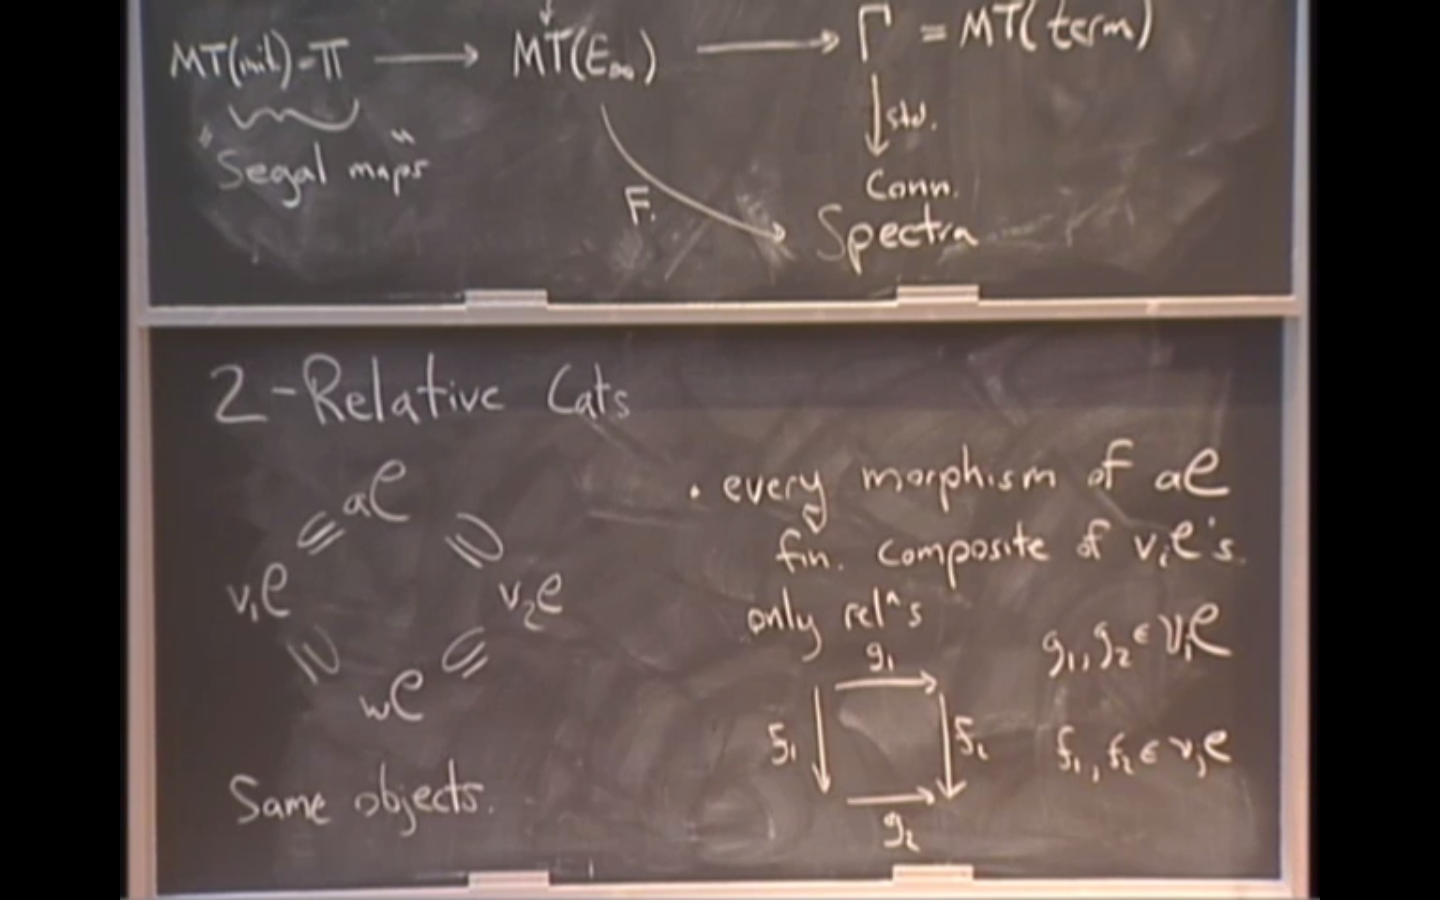 MT(init) = Π → MT(E∞) → Γ = MT(term)
std.
"Segal maps"
F.
Conn.
Spectra
2-Relative Cats
a𝒞
v₁𝒞
v₂𝒞
w𝒞
Same objects.
• every morphism of a𝒞
fin. composite of vᵢ𝒞's.
only relⁿs
g₁
g₁, g₂ ∈ vᵢ𝒞
f₁
f₂
f₁, f₂ ∈ vⱼ𝒞
g₂